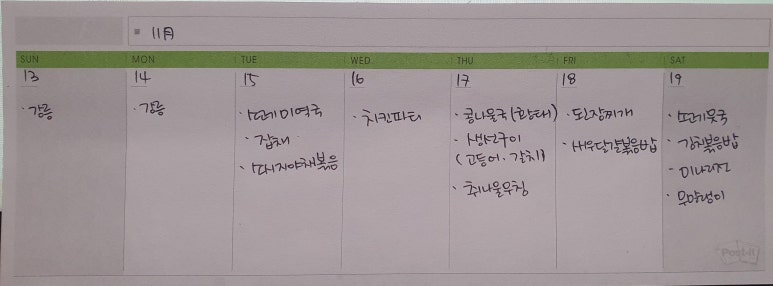 11月
SUN MON TUE WED THU FRI SAT
13 14 15 16 17 18 19
· 강릉
· 강릉
· 소고기미역국
· 잡채
· 돼지야채볶음
· 치킨파티
· 콩나물국(황태)
· 생선구이
(고등어, 갈치)
· 취나물무침
· 된장찌개
· 새우달걀볶음밥
· 소고기뭇국
· 김치볶음밥
· 미나리전
· 무말랭이
Post-it